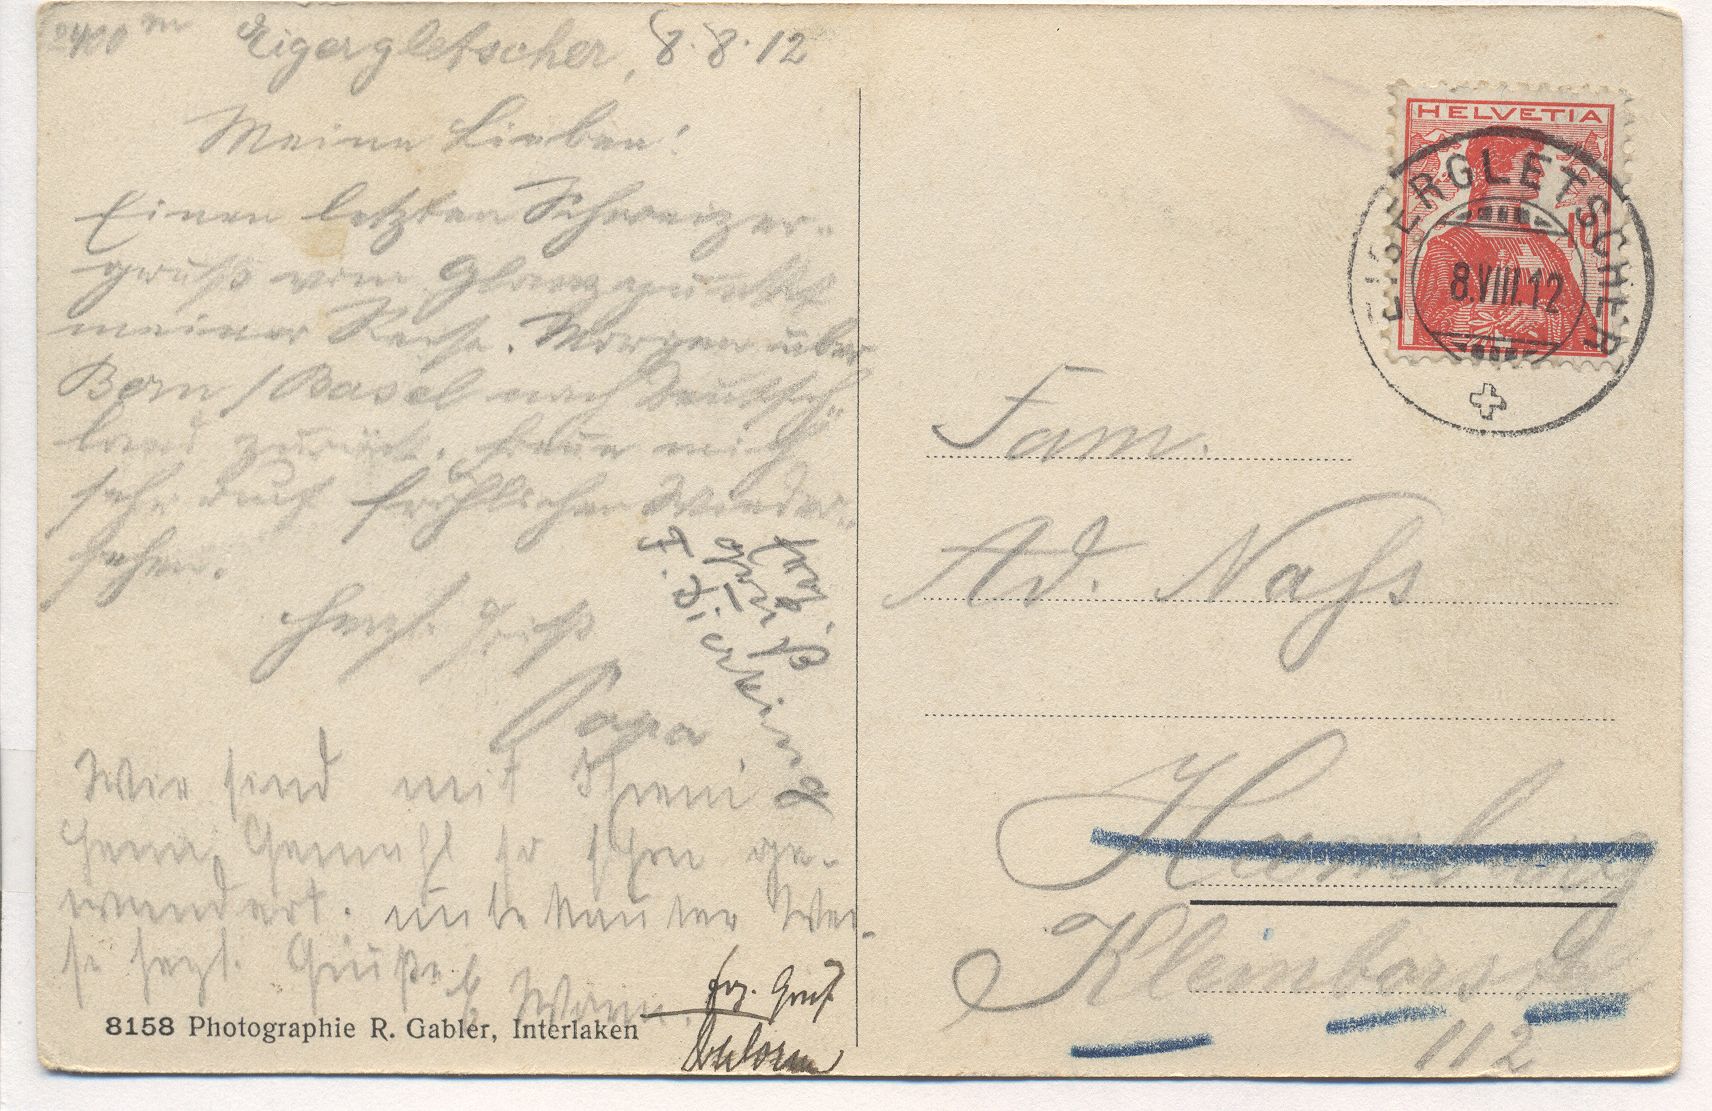 2400 m Eigergletscher, 8.8.12
Meine Lieben!
Einen letzten Schweizer-
gruß vom Glanzpunkt
meiner Reise. Morgen über
Bern / Basel nach Deutsch-
land zurück. Freue mich
sehr auf fröhlichen Wieder-
sehen.
Herzl. Gruß
Papa
herzl.
gruß
F. Dierking
Wir sind mit Ihrem
Herrn Gemahl so schön ge-
wandert. unbekannter Wei-
se herzl. Grüße
frz. Gruß
8158 Photographie R. Gabler, Interlaken
HELVETIA
10
EIGERGLETSCHER
8.VIII.12
Fam.
Ad. Nahs
Hamburg
Kleinborstel
112